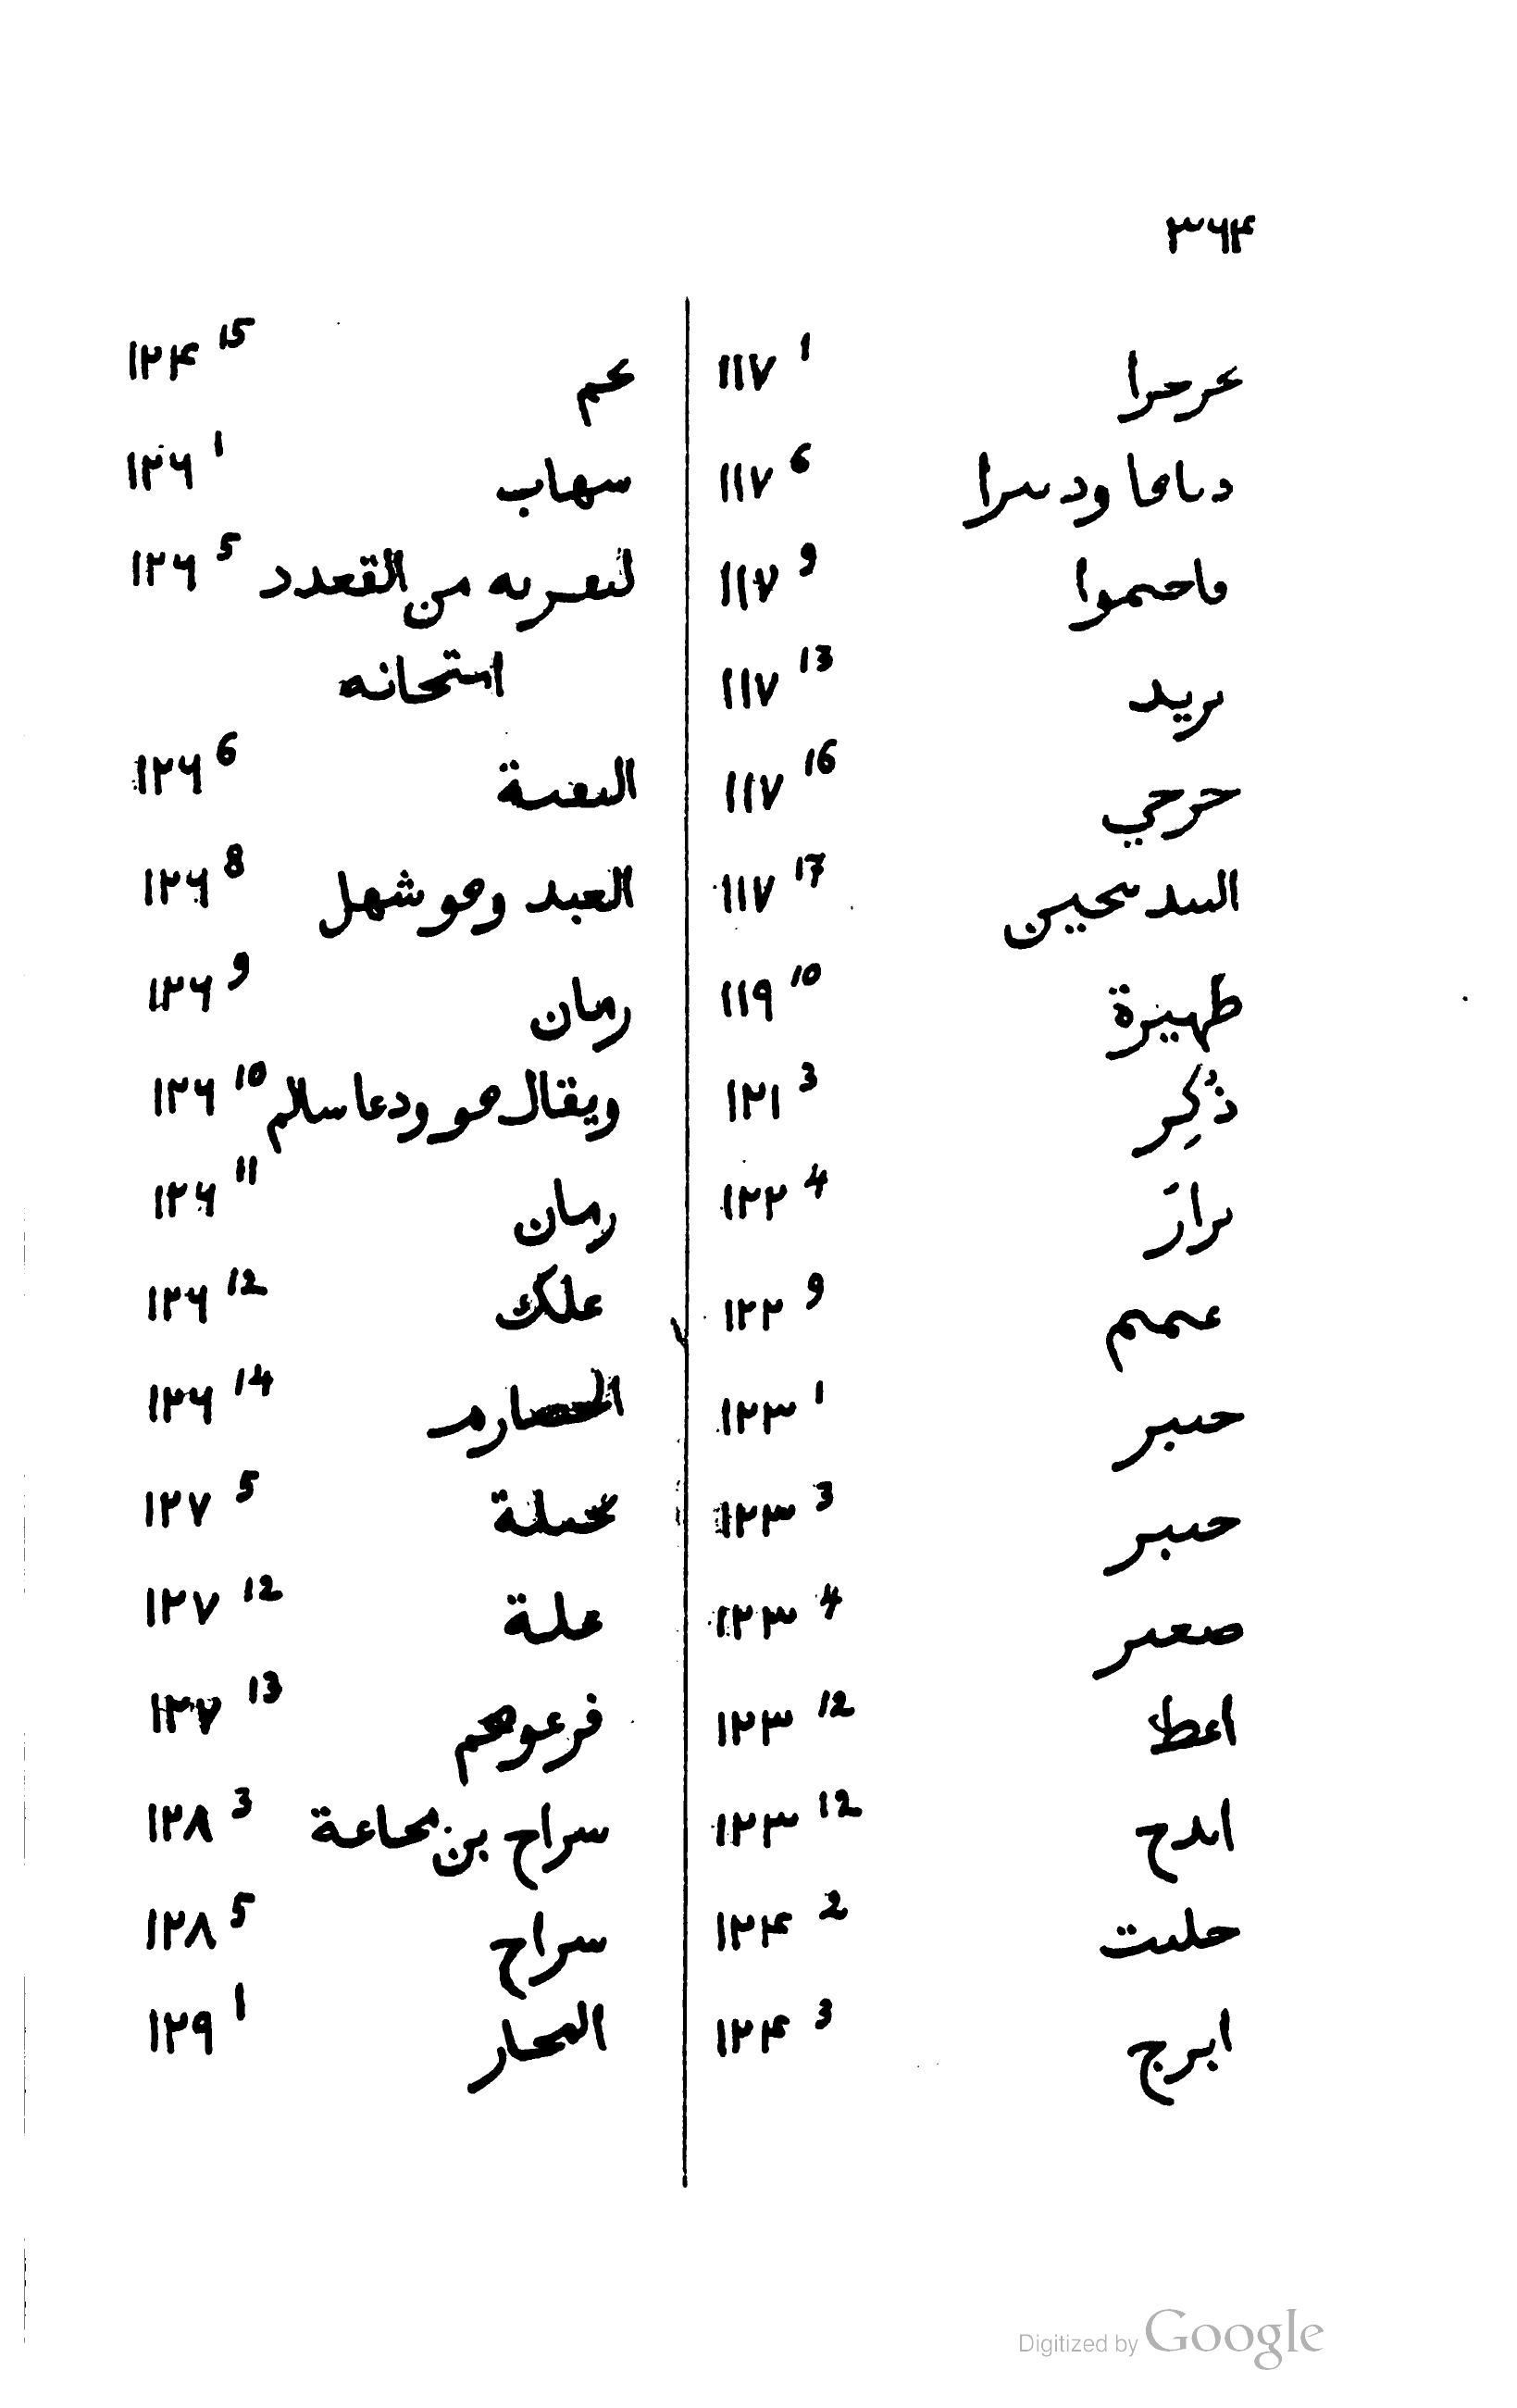 ٣٦۴
عرحرا ١١٧ 1
دىاىا ودىىرا ١١٧ 6
ماحىموا ١١٧ 9
ىريد ١١٧ 13
حرحي ١١٧ 16
السد ىىحيين ١١٧ 17
طهيزة ١١٩ 10
ذكر ١٢١ 3
ىراز ١٢٢ 4
عىمىم ١٢٢ 9
حىىبر ١٢٣ 1
حىىبر ١٢٣ 3
صعىر ١٢٣ 4
اعط ١٢٣ 12
اىدح ١٢٣ 12
حلىت ١٢۴ 2
ابرج ١٢۴ 3
عم ١٢۴ 15
سهاب ١٢٦ 1
لىعىريه من القعدد ١٢٦ 5
استحانه
الىقىىة ١٢٦ 6
العبد وهو شهل ١٢٦ 8
رمان ١٢٦ 9
ويقال هو ودعا سالم ١٢٦ 10
رمان ١٢٦ 11
علك ١٢٦ 12
١٢٦ 14
ىحىلة ١٢٧ 5
علة ١٢٧ 12
فرعوهم ١٢٧ 13
سراح بن محاعة ١٢٨ 3
سراح ١٢٨ 5
الىحار ١٢٩ 1
Digitized by Google